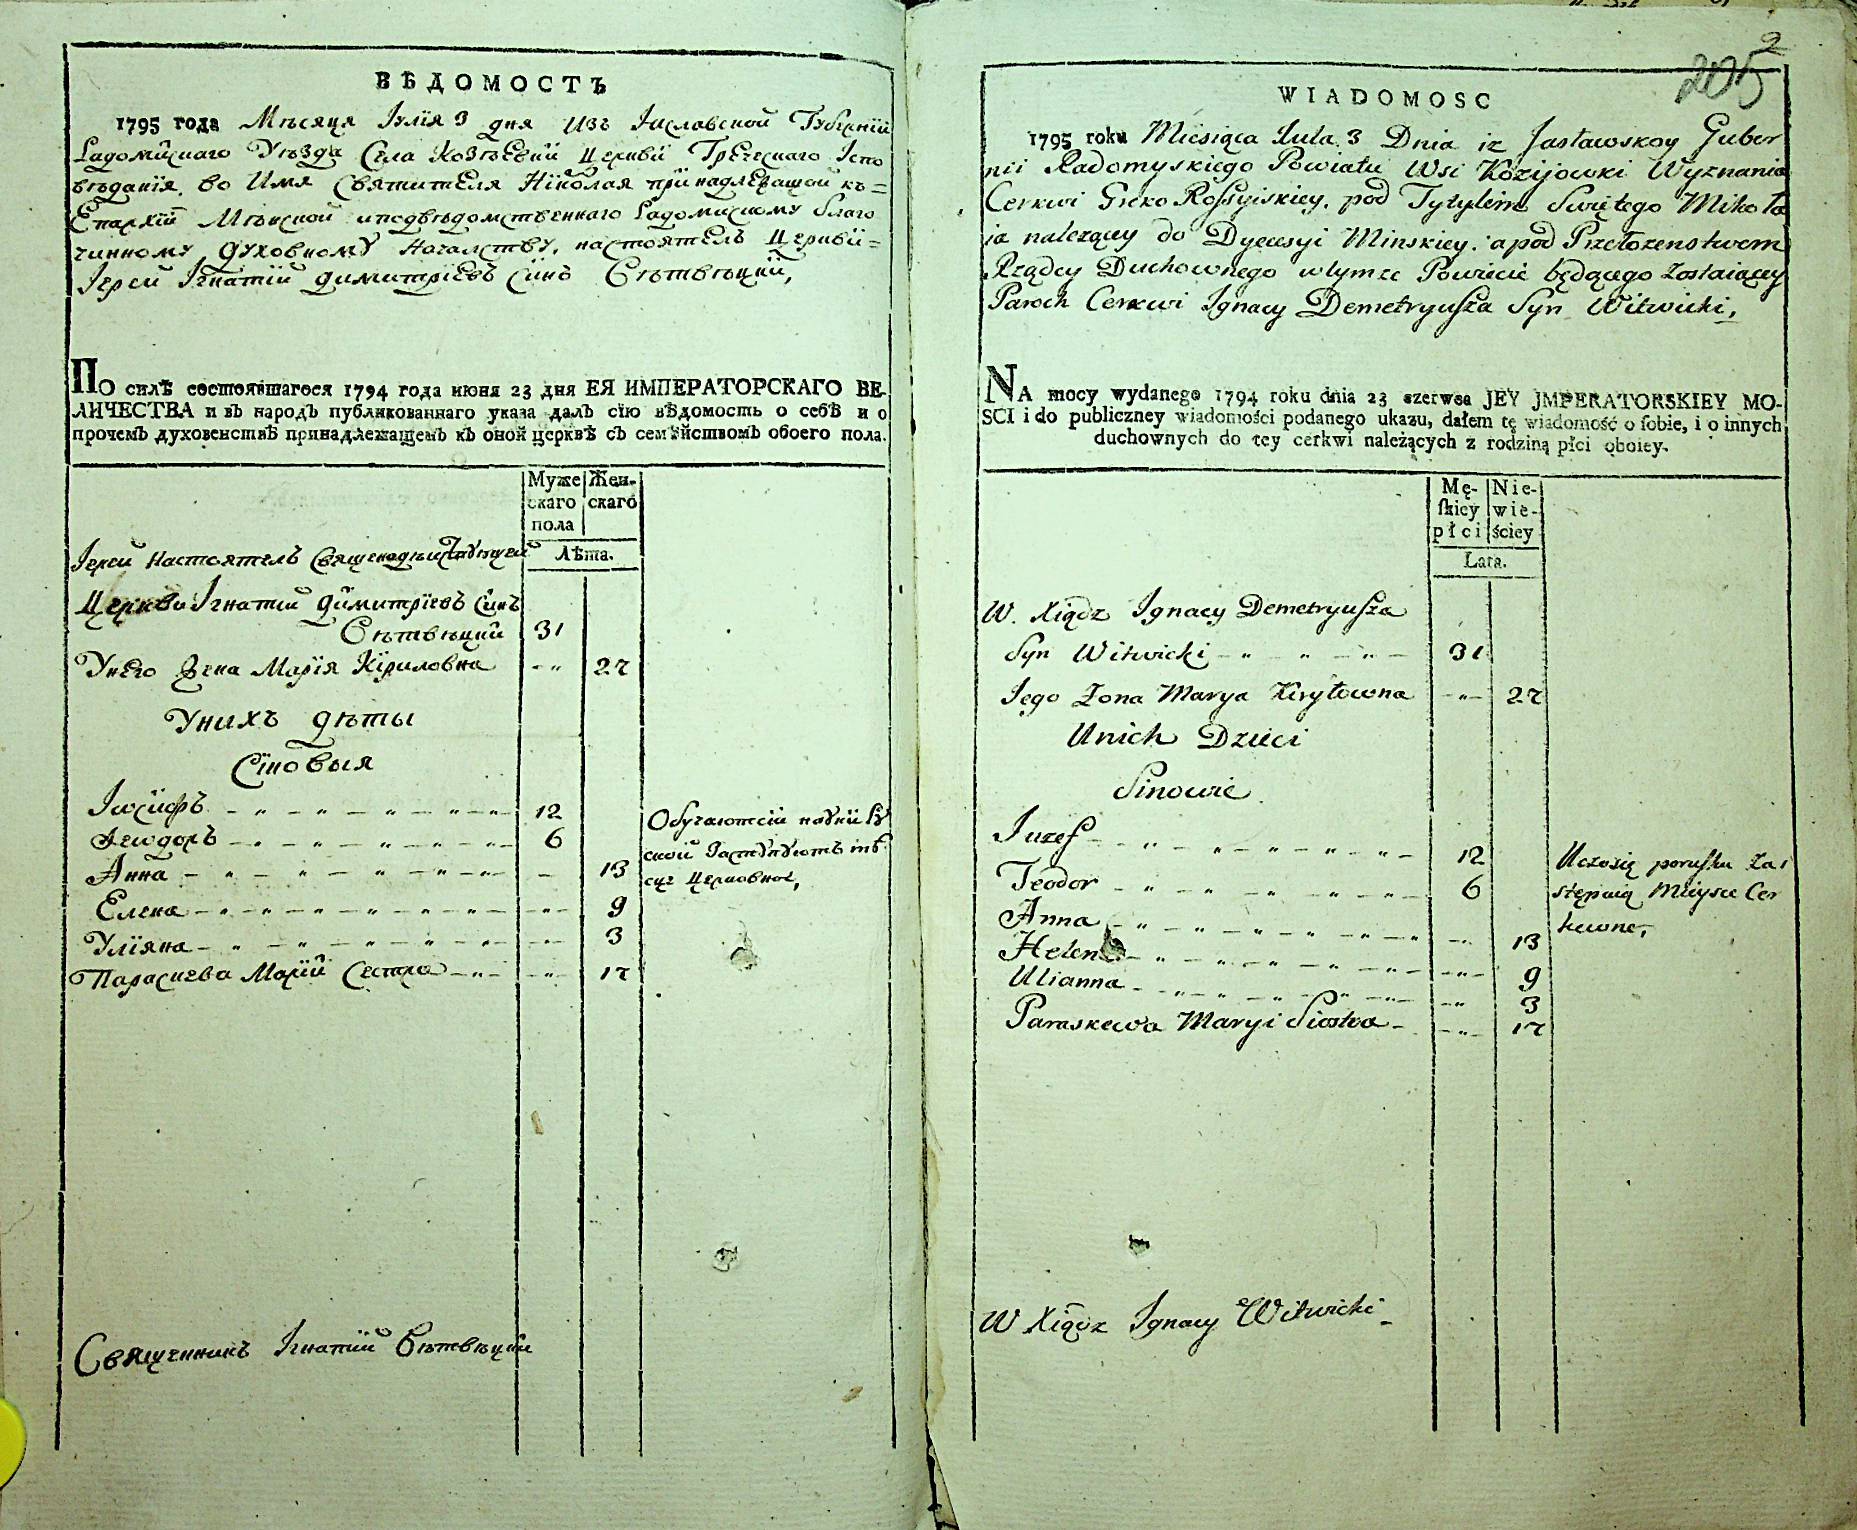 ВѢДОМОСТЬ
1795 года Мѣсяця Іулія 3 дня изъ Іаславской Губернїи
Радомисного Уѣзда Села Козѣевки Церкви Греческаго Іспо
вѣданія во Имя Святителя Николая принадлежащой къ=
Епархїи Мѣнской и подвѣдомственнаго Радомисному благо
чинному духовному начальству, настоятель Церкви=
Іерей Ігнатїй Димитрїевъ Синъ Вѣтвѣцкий,
ПО силѣ состоявшагося 1794 года июня 23 дня ЕЯ ИМПЕРАТОРСКАГО ВЕ-
ЛИЧЕСТВА и въ народъ публикованнаго указа далъ сїю вѣдомость о себѣ и о
прочемъ духовенствѣ принадлежащемъ къ оной церквѣ съ семѣйствомъ обоего пола.
Муже скаго пола
Жен- скаго
Лѣта.
Іерей Настоятель
Церкви Ігнатий Димитрїевъ Синъ
Вѣтвѣцкий 31
Унего Жена Марїя Кїриловна - „ 27
Унихъ дѣты
Сїновыя
Іосифъ 12
Ѳеодоръ 6
Анна 13
Елена 9
Улїяна 3
Параскева Марїи Сестра 17
Обучаются науки Ру
ской Заступують мѣ
сце Церковное,
Священникъ Ігнатїй Вѣтвѣцкий
2
205
WIADOMOSC
1795 roku Miesiąca Jula 3 Dnia iz Jasławskoy Guber
nii Radomyskiego Powiatu Wsi Kozijowki Wyznania
Cerkwi Greko Rossyiskiey, pod Tytylem Swiętego Mikoła
ia należącey do Dyecesyi Minskiey. a pod Przełożenstwem
Rządcy Duchownego w tymze Powiecie będącego zostaiący
Paroch Cerkwi Ignacy Demetryusza Syn Witwicki,
NA mocy wydanego 1794 roku dnia 23 szerwsa JEY JMPERATORSKIEY MO-
SCI i do publiczney wiadomości podanego ukazu, dałem tę wiadomość o sobie, i o innych
duchownych do tey cerkwi należących z rodziną płci oboiey.
Mę- skiey płci
Nie- wie- ściey
Lata.
W. Xiądz Ignacy Demetryusza
Syn Witwicki 31
Jego Żona Marya Kiryłowna 27
Unich Dzieci
Sinowie
Iuzef 12
Teodor 6
Anna 13
Helena 9
Ulianna 3
Paraskewa Maryi Siostra 17
Uczosię porusku Zas
stępuią Mieysce Cer
kewne,
W Xiądz Ignacy Witwicki